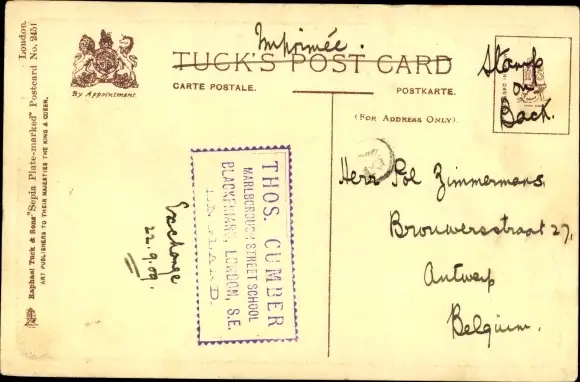 Imprimée.
TUCK'S POST CARD
By Appointment.
CARTE POSTALE.
POSTKARTE.
(FOR ADDRESS ONLY).
Stamp
on
back.
Herr Pol Zimmermans
Brouwersstraat 27,
Antwerp
Belgium.
THOS. CUMBER
MARLBOROUGH STREET SCHOOL
BLACKFRIARS, LONDON, S.E.
ENGLAND.
Exchange
22.9.09.
Raphael Tuck & Sons' "Sepia Plate-marked" Postcard No. 2451 London.
ART PUBLISHERS TO THEIR MAJESTIES THE KING & QUEEN.